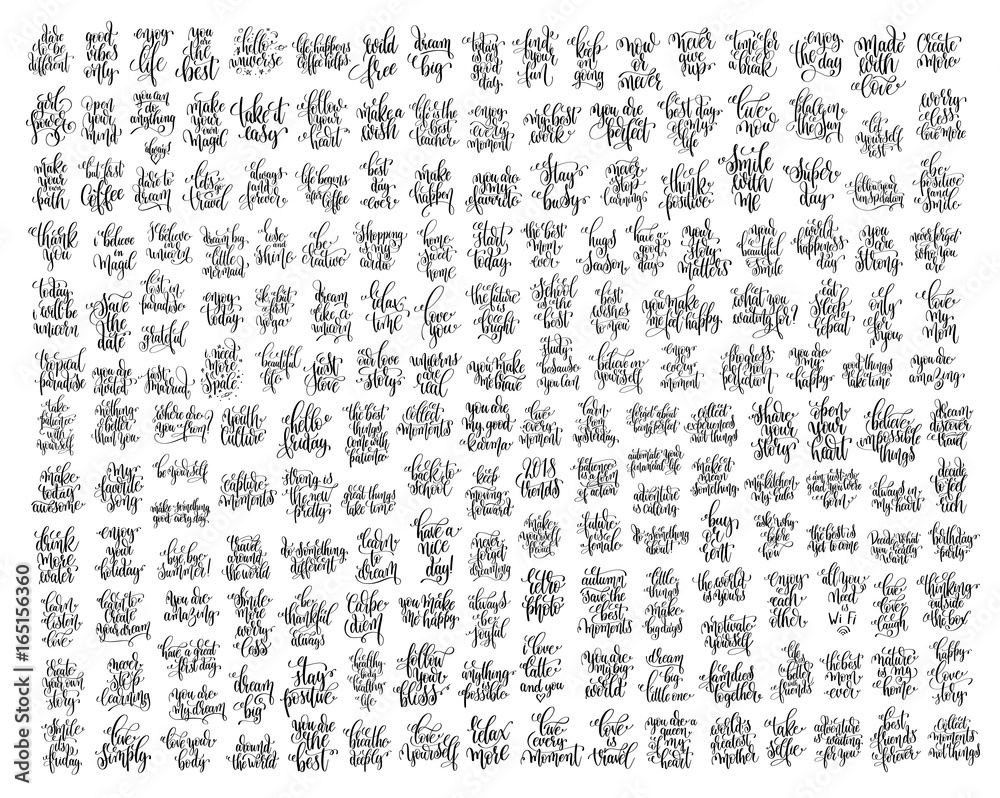 dare to be different
good vibes only
enjoy life
you are the best
hello universe
life happens coffee helps
wild free
dream big
today is a good day
find your fun
keep on going
now or never
never give up
time for a break
enjoy the day
made with love
create more
girl power
open your mind
you can do anything
always!
make your own magic
take it easy
follow your heart
make a wish
life is the best teacher
enjoy every moment
my best work
you are perfect
best day of my life
live now
place in the sun
let yourself rest
worry less love more
make your own path
but first coffee
dare to dream
let's travel
always and forever
life begins after coffee
best day ever
make it happen
you are my favorite
stay busy
never stop learning
think positive
smile with me
super day
follow your inspiration
be positive and smile
thank you
i believe in magic
I believe in unicorn
dream big little mermaid
rise and shine
be creative
shopping is my cardio
home sweet home
start today
the best mom ever
hugs season
have a good day
your story matters
your beautiful smile
world happiness day
you are strong
never forget who you are
today i will be unicorn
save the date
lost in paradise
grateful
enjoy today
but first yoga
dream like a unicorn
relax time
love you
the future is bright
school is the best
best wishes to you
you make me feel happy
what you waiting for?
eat sleep repeat
only for you
love my mom
tropical paradise
you are needed
just married
i need more space
beautiful life
just love
our love story
unicorns are real
you make me brave
study because you can
believe in yourself
enjoy every moment
progress not perfection
you are my happy
good things take time
you are amazing
take patience with yourself
nothing is better than you
where are you from?
youth culture
hello friday
the best things come with patience
collect moments
you are my good karma
live every moment
learn from yesterday
forget about being perfect
collect experiences not things
share your story
open your heart
believe impossible things
dream discover travel
make today awesome
my favorite song
be yourself
make something good every day
capture moments
strong is the new pretty
great things take time
back to school
keep moving forward
2018 trends
patience is a form of action
automate your financial life
adventure is calling
make it mean something
my kitchen my rules
always in my heart
decide to feel rich
drink more water
enjoy your holiday
bye bye summer!
travel around the world
do something different
learn to dream
have a nice day!
never forget dreaming
make yourself proud
future is female
do something about!
buy or rent
ask why before how
the best is yet to come
decide what you really want
birthday party
learn listen love
learn to create your dream
you are amazing
smile more worry less
be thankful always
carpe diem
you make me happy
always be joyful
retro photo
autumn save the best moments
little things make big days
the world is yours
enjoy each other
all you need is WiFi
live love laugh
thinking outside the box
create your own story
never stop learning
have a great first day
you are my dream
dream big
stay positive
healthy body healthy life
follow your bless
anything is possible
i love latte and you
you are my big world
dream big little one
motivate yourself
families together
life is better with friends
the best mom ever
nature is my home
happy love story
smile it's friday
live simply
love your body
around the world
you are the best
breathe deeply
love yourself
relax more
live every moment
love is travel
you are a queen of my heart
world's greatest mother
take selfie
adventure is waiting for you
best friends forever
collect moments not things
Adobe Stock
#165156360